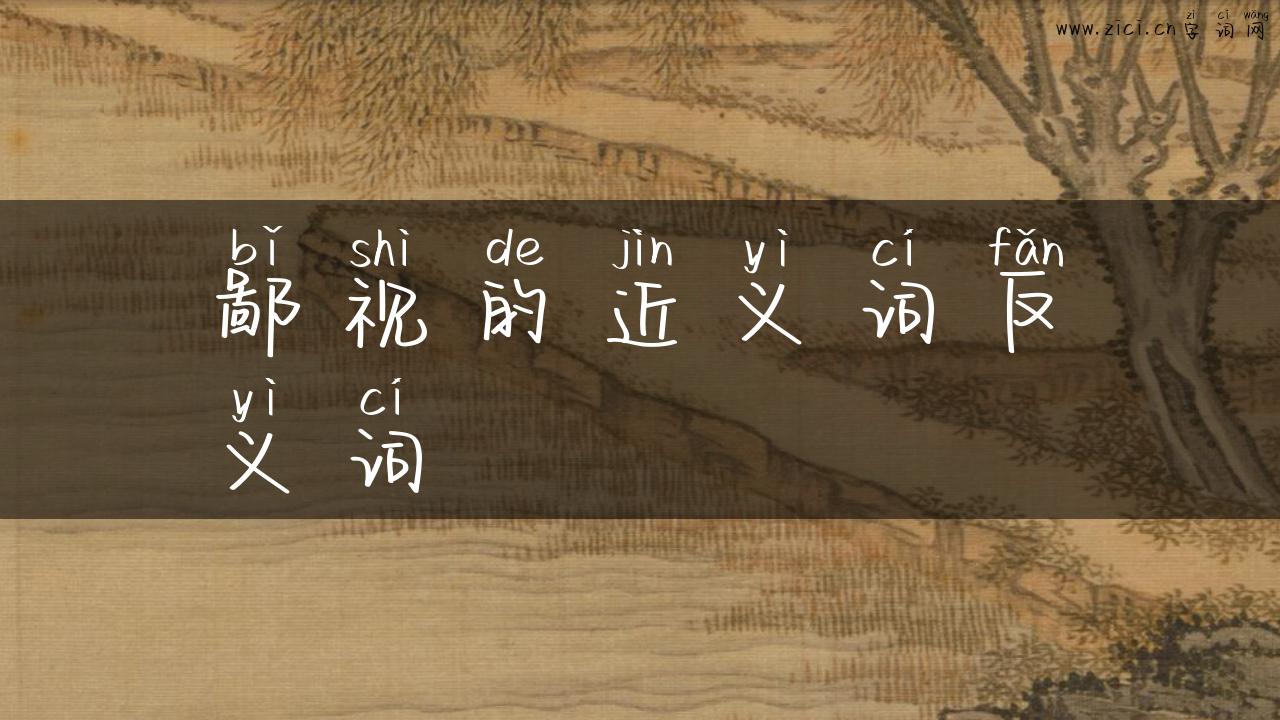 zì cí wǎng
www.zici.cn字词网
bǐ shì de jìn yì cí fǎn
鄙视的近义词反
yì cí
义词